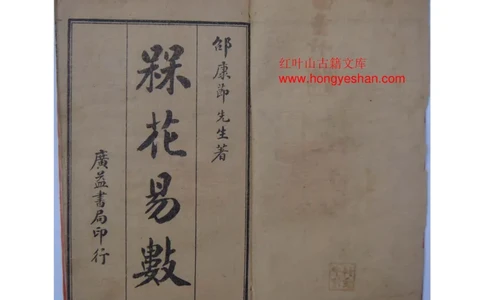 邵康節先生著
槑花易數
廣益書局印行
红叶山古籍文库
www.hongyeshan.com